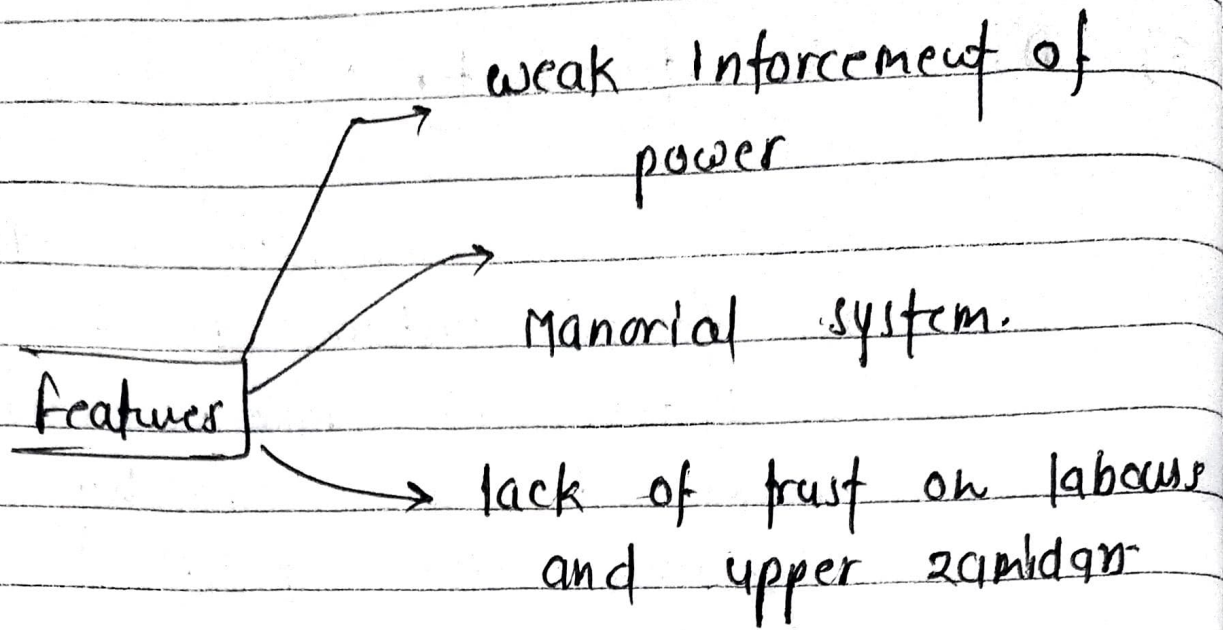 weak Inforcement of
power
Manorial system.
features
lack of trust on labours
and upper zamidar